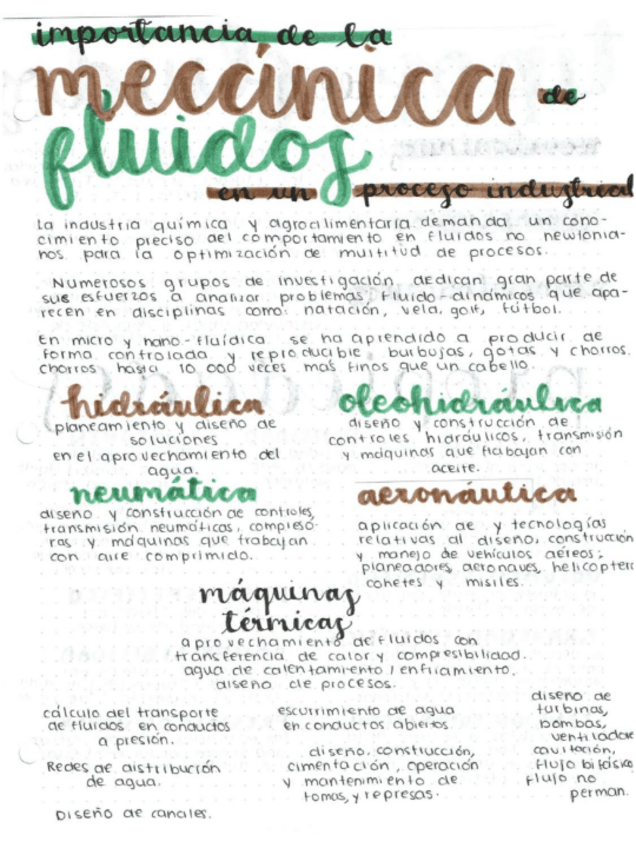 importancia de la
mecánica de
fluidos
en un proceso industrial
La industria química y agroalimentaria demanda un cono-
cimiento preciso del comportamiento en fluidos no newtonia-
nos para la optimización de multitud de procesos.
Numerosos grupos de investigación dedican gran parte de
sus esfuerzos a analizar problemas fluido-dinámicos que apa-
recen en disciplinas como: natación, vela, golf, fútbol.
En micro y nano-fluídica se ha aprendido a producir de
forma controlada y reproducible, burbujas, gotas y chorros.
Chorros hasta 10 000 veces mas finos que un cabello.
hidráulica
planeamiento y diseño de
soluciones
en el aprovechamiento del
agua.
oleohidráulica
diseño y construcción de
controles hidráulicos, transmisión
y máquinas que trabajan con
aceite.
neumática
diseño y construcción de controles,
transmisión neumáticas, compreso-
ras y máquinas que trabajan
con aire comprimido.
aeronáutica
aplicación de y tecnologías
relativas al diseño, construcción
y manejo de vehículos aéreos:
planeadores, aeronaves, helicoptero
cohetes y misiles.
máquinas
térmicas
aprovechamiento de fluidos con
transferencia de calor y compresibilidad.
agua de calentamiento / enfriamiento.
diseño de procesos.
cálculo del transporte
de fluidos en conductos
a presión.
Redes de distribución
de agua.
Diseño de canales.
escurrimiento de agua
en conductos abiertos
diseño, construcción,
cimentación, operación
y mantenimiento de
tomas, y represas.
diseño de
turbinas,
bombas,
ventiladore
cavitación,
flujo bifásico
flujo no
perman.